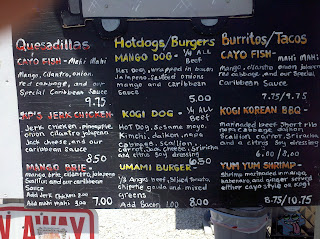 Quesadillas
CAYO FISH - Mahi Mahi
Mango, cilantro, onion,
red cabbage, and our
Special Caribbean
Sauce
9.75
JERK CHICKEN
Jerk chicken, pineapple,
onion, cilantro, jalapeno,
Jack cheese, and our
caribbean sauce
8.50
MANGO BRIE -
Mango, brie, cilantro, jalapeno
and our caribbean
Sauce
Add Jerk Chicken
Add mahi mahi 9.00
7.00
N AWAY
Hotdogs/Burgers
MANGO DOG - 1/4 ALL
Beef
Hot Dog, wrapped in bacon
Jalapeno, Sauteed onions
mango and caribbean
Sauce
5.00
KOGI DOG - 1/4 ALL
Beef
Hot Dog, Sesame mayo,
Kimchi, daikon, napa
cabbage, scallion,
carrot, Jack cheese, Sriracha
and citrus Soy dressing
6.50
UMAMI BURGER -
1/3 Angus beef, Sliced Tomato,
chipotle gouda and mixed
greens
Add Bacon 1.00
8.00
Burritos/Tacos
CAYO FISH - MAHI MAHI
Mango, cilantro, onion, jalapeno
red cabbage, and our Special
Caribbean Sauce
9.75/9.75
KOGI KOREAN BBQ -
marinaded beef Short rib
napa cabbage, daikon,
Scallion, carrot, Sriracha
and a citrus Soy dressing
YUM YUM SHRIMP -
Shrimp marinaded in mango,
habanero, and ginger served
either cayo style or kogi
8.75/10.75